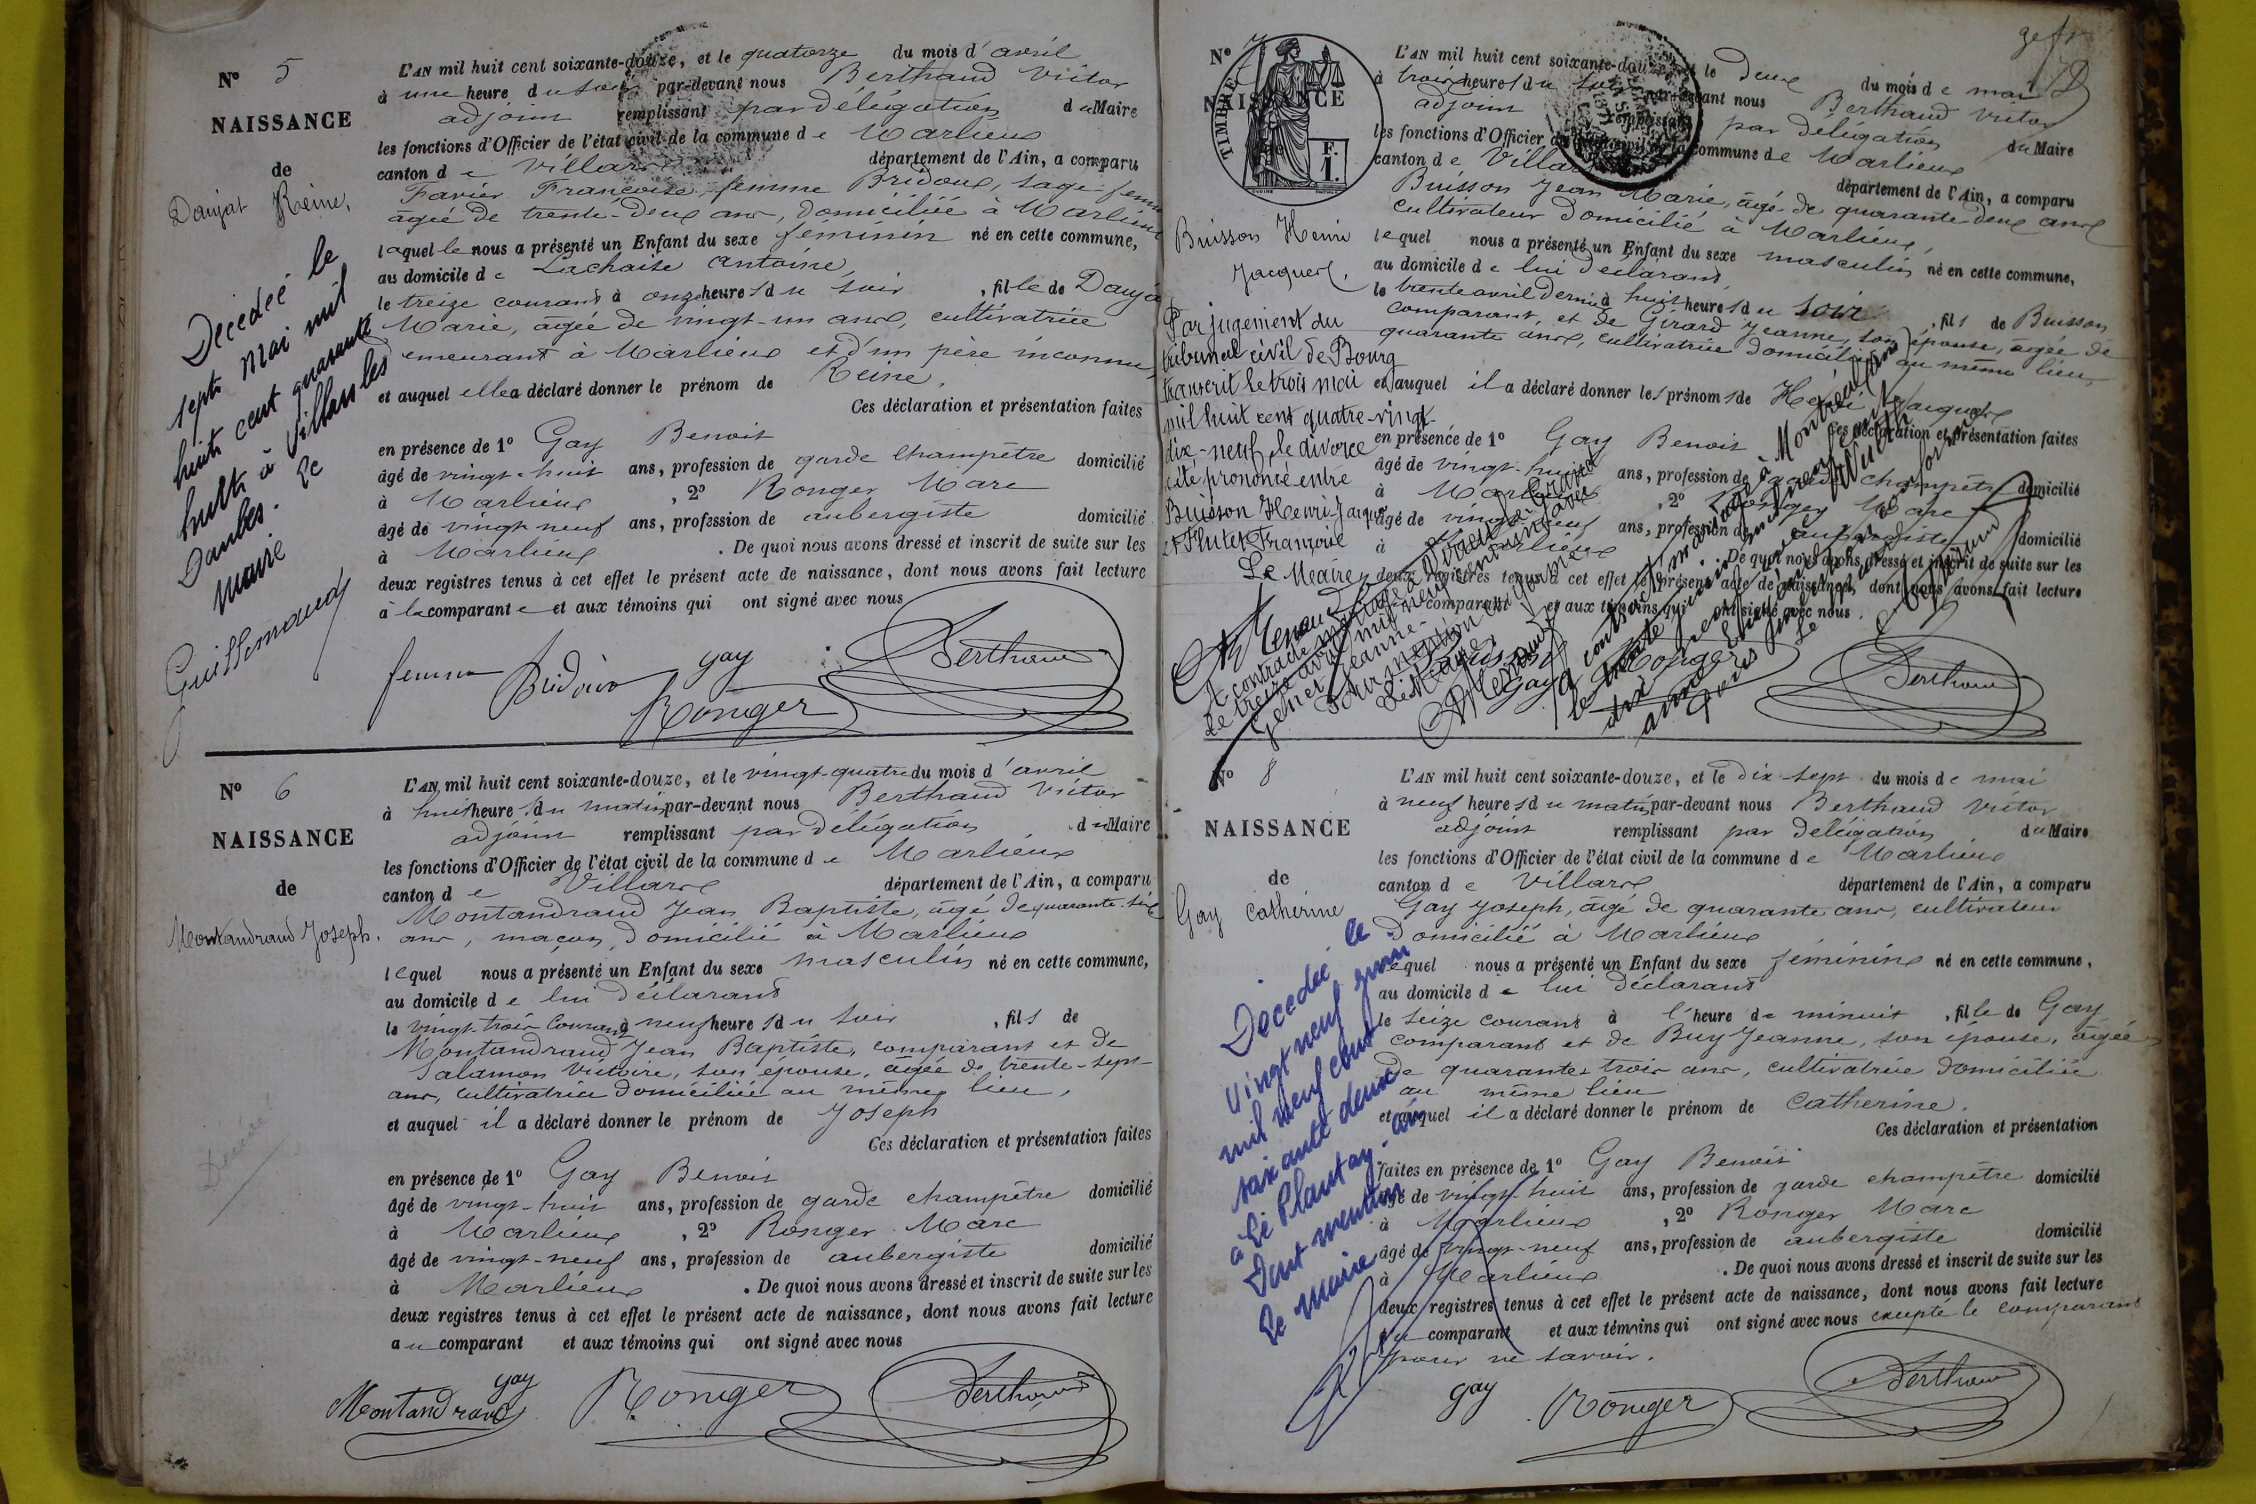 N° 5
NAISSANCE
de
Daujat Reine.
Décédée le
sept mai mil
huit cent quarante
huit à Villars les
Dombes. Le
Maire
Guillemaud
L'AN mil huit cent soixante-douze, et le quatorze du mois d'avril
à une heure du soir par-devant nous Berthaud Victor
adjoint remplissant par délégation du Maire
les fonctions d'Officier de l'état civil de la commune de Marlieux
canton de Villars département de l'Ain, a comparu
Favier Françoise, femme Bridoux, sage-femme
âgée de trente-deux ans, domiciliée à Marlieux
laquelle nous a présenté un Enfant du sexe féminin né en cette commune,
au domicile de Lachaise Antoine,
le treize courant à onze heures du soir, fille de Daujat
Marie, âgée de vingt-un ans, cultivatrice
demeurant à Marlieux et d'un père inconnu,
et auquel elle a déclaré donner le prénom de Reine.
Ces déclaration et présentation faites
en présence de 1° Gay Benoit
âgé de vingt-huit ans, profession de garde champêtre domicilié
à Marlieux, 2° Ronger Marc
âgé de vingt-neuf ans, profession de aubergiste domicilié
à Marlieux. De quoi nous avons dressé et inscrit de suite sur les
deux registres tenus à cet effet le présent acte de naissance, dont nous avons fait lecture
à la comparante et aux témoins qui ont signé avec nous
femme Bridoux gay Ronger Berthaud
N° 6
NAISSANCE
de
Montandraud Joseph.
Décédé
L'AN mil huit cent soixante-douze, et le vingt-quatre du mois d'avril
à huit heures du matin par-devant nous Berthaud Victor
adjoint remplissant par délégation du Maire
les fonctions d'Officier de l'état civil de la commune de Marlieux
canton de Villars département de l'Ain, a comparu
Montandraud Jean Baptiste, âgé de quarante-six
ans, maçon, domicilié à Marlieux
lequel nous a présenté un Enfant du sexe masculin né en cette commune,
au domicile de lui déclarant
le vingt-trois courant à neuf heures du soir, fils de
Montandraud Jean Baptiste, comparant et de
Salamon Victoire, son épouse, âgée de trente-sept
ans, cultivatrice domiciliée au même lieu,
et auquel il a déclaré donner le prénom de Joseph
Ces déclaration et présentation faites
en présence de 1° Gay Benoit
âgé de vingt-huit ans, profession de garde champêtre domicilié
à Marlieux, 2° Ronger Marc
âgé de vingt-neuf ans, profession de aubergiste domicilié
à Marlieux. De quoi nous avons dressé et inscrit de suite sur les
deux registres tenus à cet effet le présent acte de naissance, dont nous avons fait lecture
au comparant et aux témoins qui ont signé avec nous
Montandraud gay Ronger Berthaud
N° 7
NAISSANCE
TIMBRE
F. 1.
Buisson Henri
Jacques.
Par jugement du
tribunal civil de Bourg
transcrit le trois mai
mil huit cent quatre-vingt
dix-neuf, le divorce
a été prononcé entre
Buisson Henri-Jacques
et Flutet Françoise
Le Maire,
L'AN mil huit cent soixante-douze, et le deux du mois de mai
à trois heures du soir par-devant nous Berthaud Victor
adjoint remplissant par délégation du Maire
les fonctions d'Officier de l'état civil de la commune de Marlieux
canton de Villars département de l'Ain, a comparu
Buisson Jean Marie, âgé de quarante-deux ans
cultivateur domicilié à Marlieux,
lequel nous a présenté un Enfant du sexe masculin né en cette commune,
au domicile de lui déclarant
le trente avril dernier à huit heures du soir, fils de Buisson
comparant, et de Girard Jeanne, son épouse, âgée de
quarante ans, cultivatrice domiciliée au même lieu,
et auquel il a déclaré donner les prénoms de Henri Jacques
Ces déclaration et présentation faites
en présence de 1° Gay Benoit
âgé de vingt-huit ans, profession de garde champêtre domicilié
à Marlieux, 2° Ronger Marc
âgé de vingt-neuf ans, profession de aubergiste domicilié
à Marlieux. De quoi nous avons dressé et inscrit de suite sur les
deux registres tenus à cet effet le présent acte de naissance, dont nous avons fait lecture
au comparant et aux témoins qui ont signé avec nous.
A contracté mariage à
le treize avril mil neuf cent un avec
Genet Jeanne-
Pour mention conforme:
Le Maire,
A contracté mariage à Montréal (Ain)
le trente
Buisson Gay Ronger Berthaud
N° 8
NAISSANCE
de
Gay Catherine
Décédée le
vingt neuf juin
mil neuf cent
soixante deux
à Le Plantay. Ain
Dont mention
Le Maire
L'AN mil huit cent soixante-douze, et le dix-sept du mois de mai
à neuf heures du matin par-devant nous Berthaud Victor
adjoint remplissant par délégation du Maire
les fonctions d'Officier de l'état civil de la commune de Marlieux
canton de Villars département de l'Ain, a comparu
Gay Joseph, âgé de quarante ans, cultivateur
domicilié à Marlieux
lequel nous a présenté un Enfant du sexe féminin né en cette commune,
au domicile de lui déclarant
le seize courant à l'heure de minuit, fille de Gay
comparant et de Buy Jeanne, son épouse, âgée
de quarante trois ans, cultivatrice domiciliée
au même lieu
et auquel il a déclaré donner le prénom de Catherine.
Ces déclaration et présentation
faites en présence de 1° Gay Benoit
âgé de vingt-huit ans, profession de garde champêtre domicilié
à Marlieux, 2° Ronger Marc
âgé de vingt-neuf ans, profession de aubergiste domicilié
à Marlieux. De quoi nous avons dressé et inscrit de suite sur les
deux registres tenus à cet effet le présent acte de naissance, dont nous avons fait lecture
au comparant et aux témoins qui ont signé avec nous excepté le comparant
pour ne savoir.
gay Ronger Berthaud